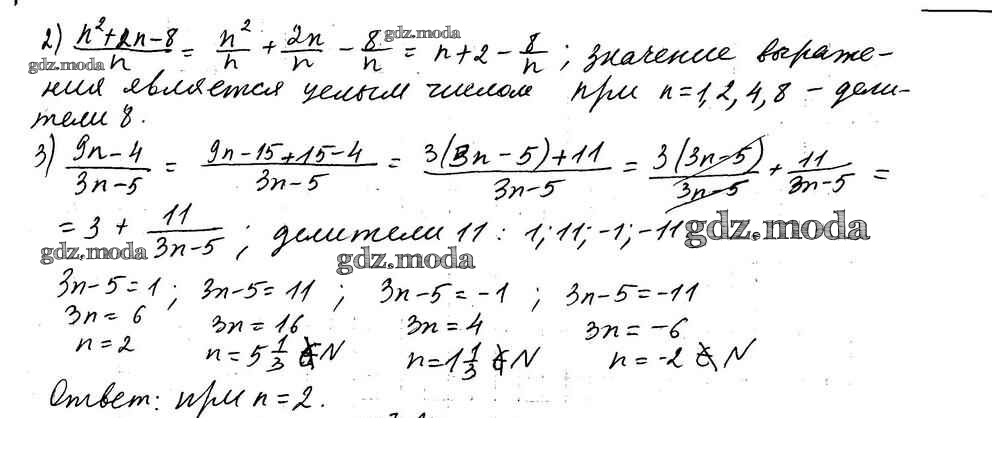 2) (n²+2n-8)/n = n²/n + 2n/n - 8/n = n+2 - 8/n ; значение выраже-
ния является целым числом при n=1,2,4,8 – дели-
тели 8.
3) (9n-4)/(3n-5) = (9n-15+15-4)/(3n-5) = (3(3n-5)+11)/(3n-5) = 3(3n-5)/(3n-5) + 11/(3n-5) =
= 3 + 11/(3n-5) ; делители 11 : 1; 11; -1; -11
3n-5=1 ; 3n-5=11 ; 3n-5=-1 ; 3n-5=-11
3n=6 3n=16 3n=4 3n=-6
n=2 n=5 1/3 ∉ N n=1 1/3 ∉ N n=-2 ∉ N
Ответ: при n=2.
gdz.moda
gdz.moda
gdz.moda
gdz.moda
gdz.moda
gdz.moda